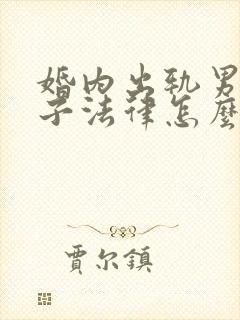 婚内出轨男
子法律怎麼
賈尔鎮